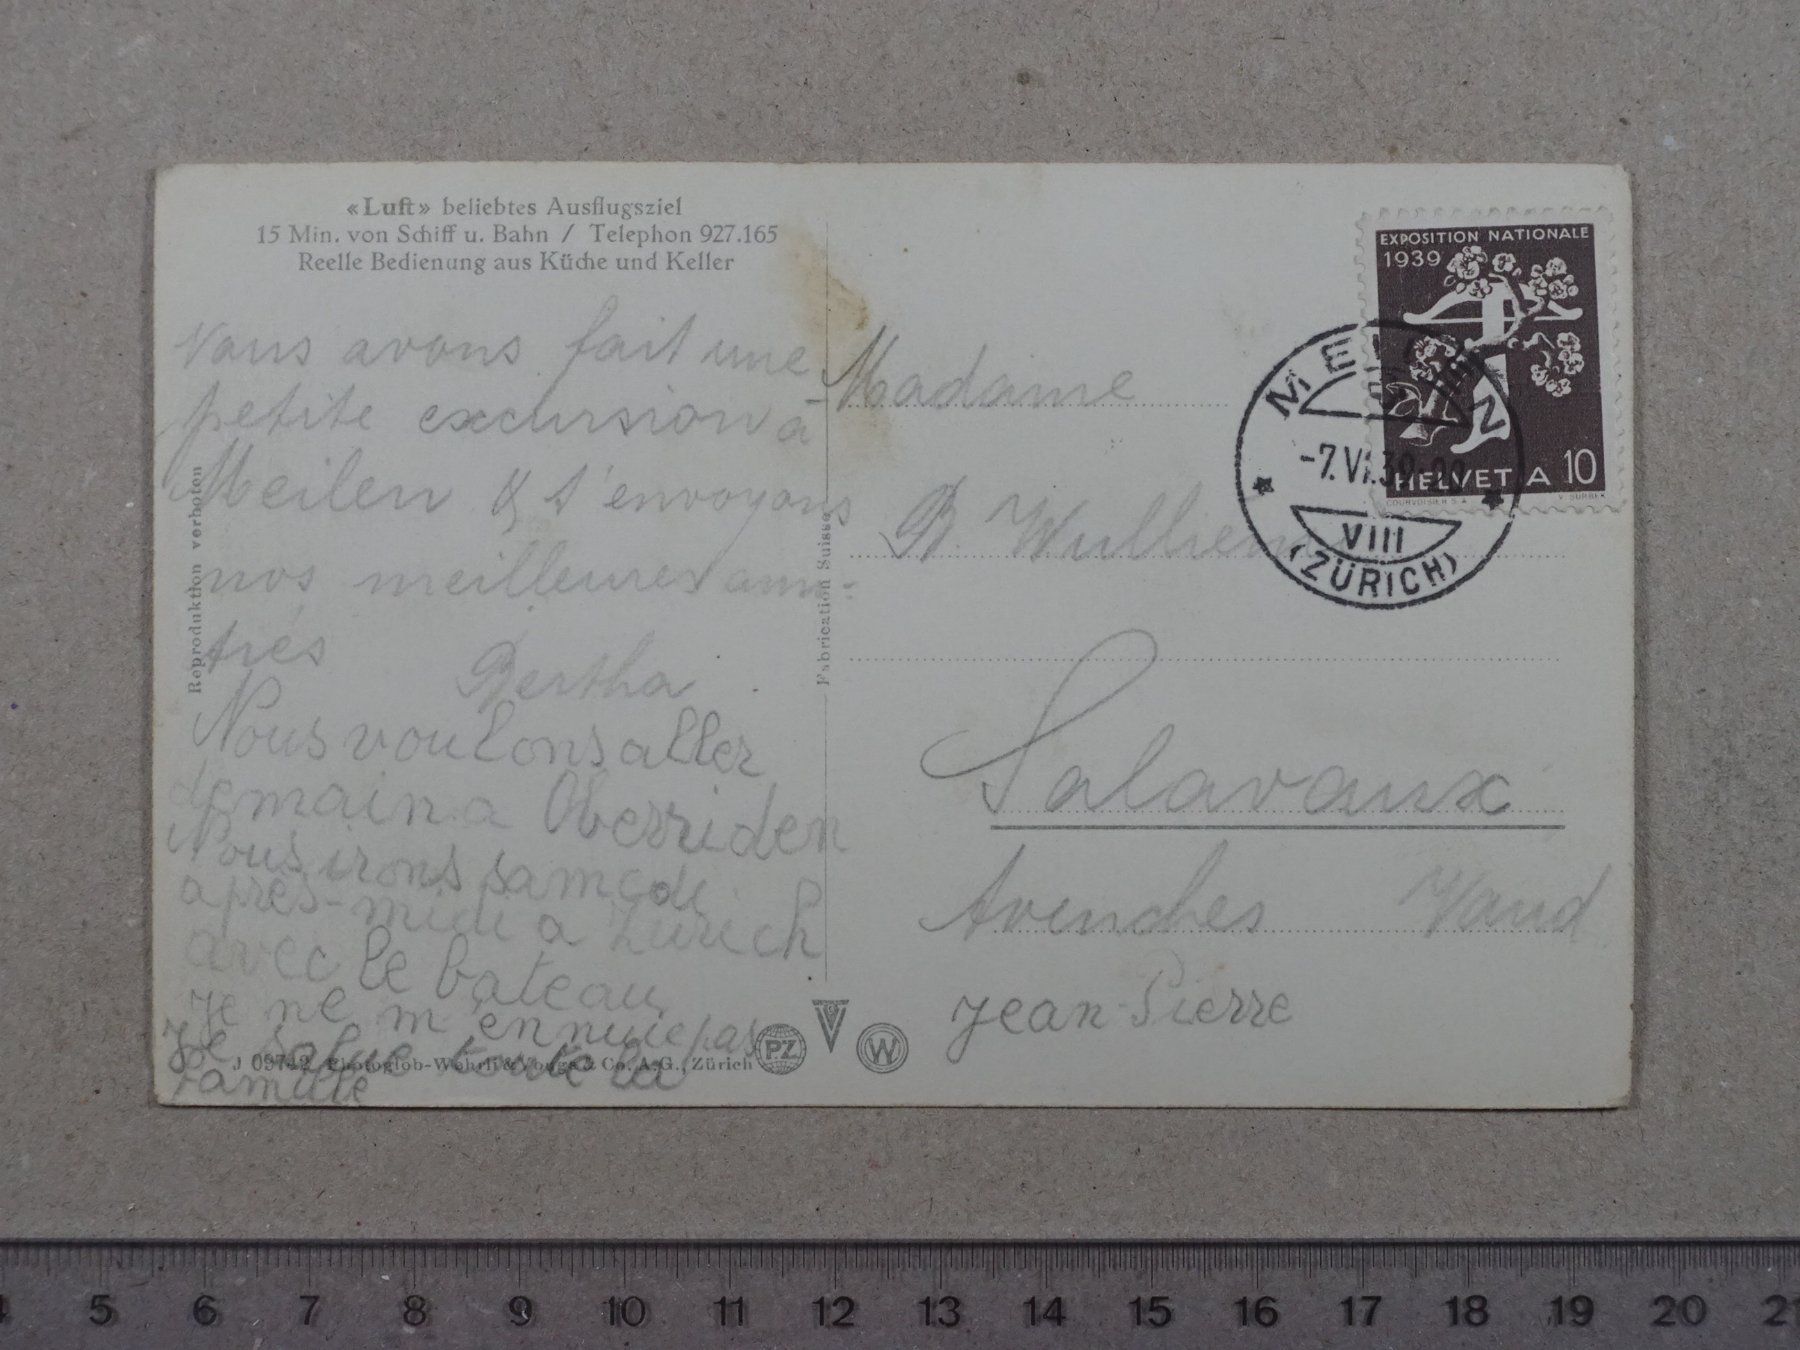 «Luft» beliebtes Ausflugsziel
15 Min. von Schiff u. Bahn / Telephon 927.165
Reelle Bedienung aus Küche und Keller
Nous avons fait une
petite excursion à
Meilen & t'envoyons
nos meilleures ami-
tiés
Bertha
Nous voulons aller
demain a Oberriden
Nous irons samedi
après-midi a Zürich
avec le bateau
je ne m'ennuie pas
je salue toute la
famille
Reproduktion verboten
Fabrication Suisse
J 09742 Photoglob-Wehrli & Vouga & Co. A.G., Zürich
PZ
V
W
Madame
B. Wulliem
Salavaux
Avenches Vaud
Jean-Pierre
EXPOSITION NATIONALE
1939
HELVETIA 10
COURVOISIER S.A.
V. SURBEK
MEILEN
-7.VI.39
VIII
(ZÜRICH)
4 5 6 7 8 9 10 11 12 13 14 15 16 17 18 19 20 21